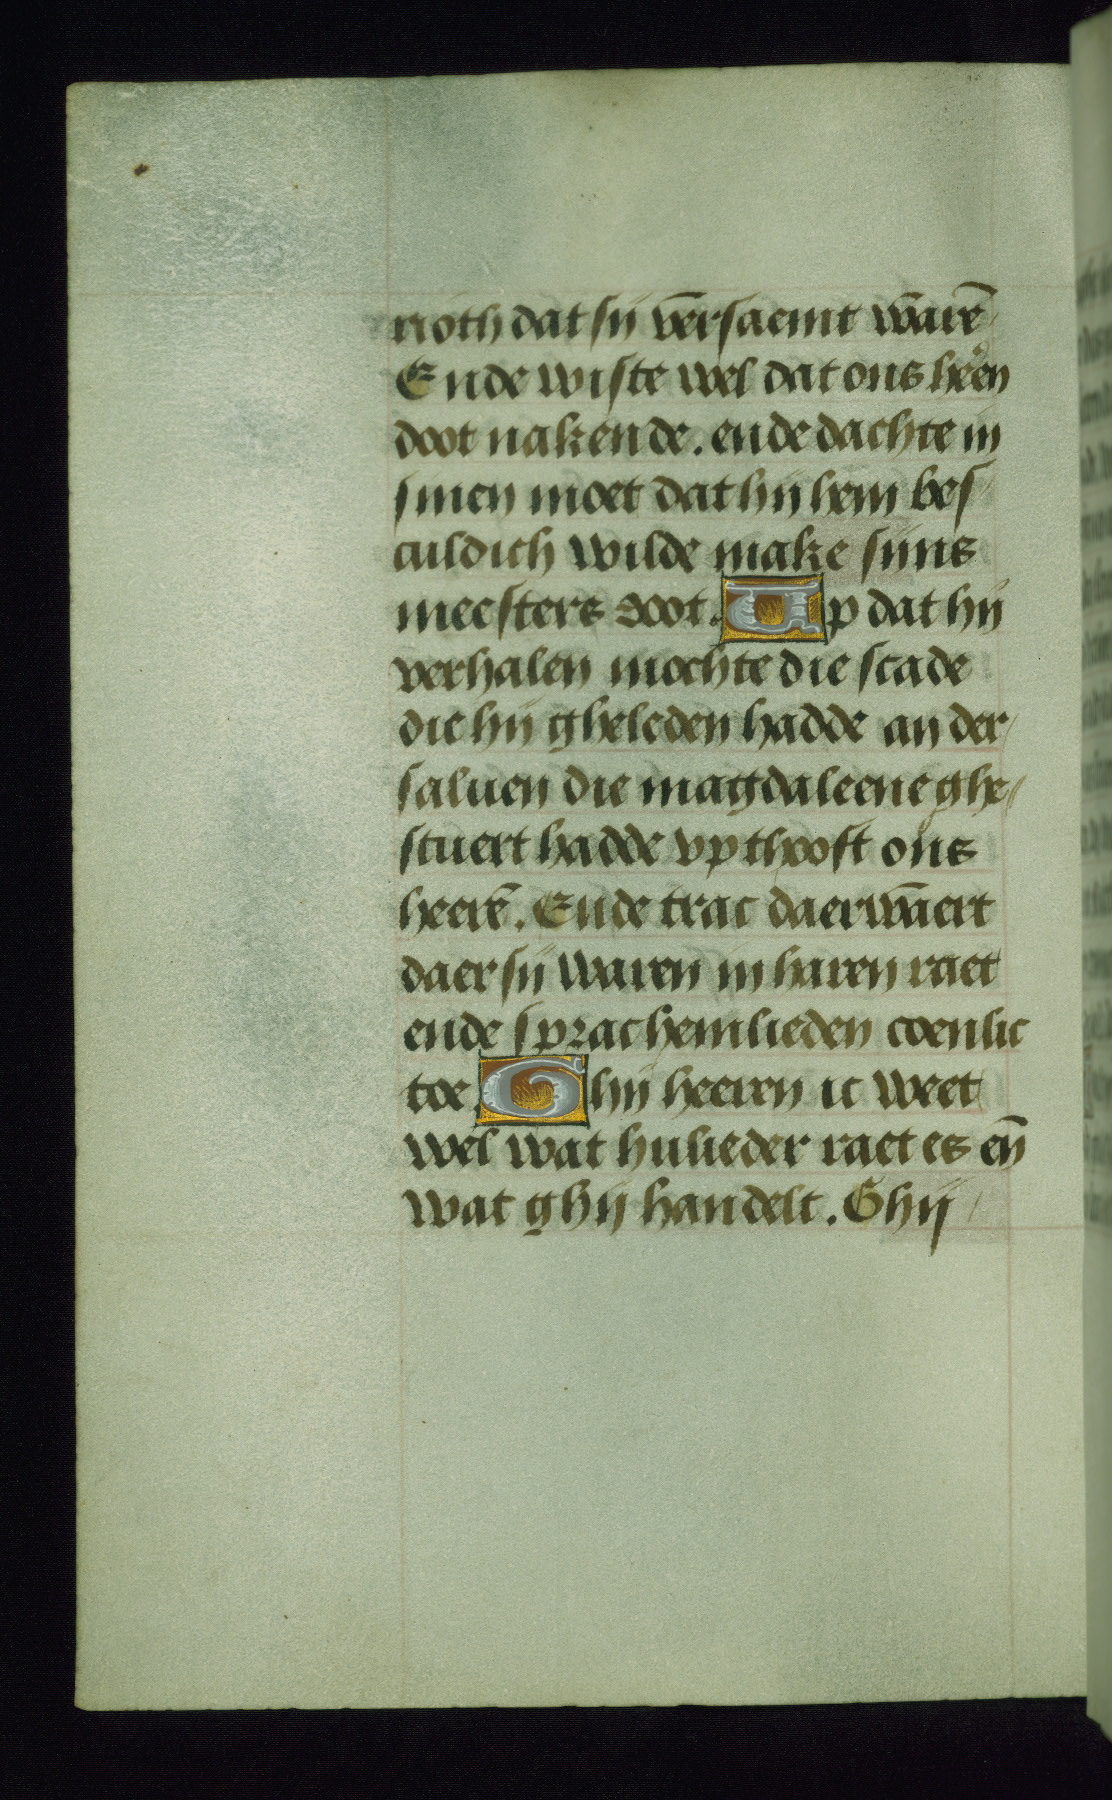 rioth dat sij versaemt warē
Ende wiste wel dat ons heeren
doot nakende. ende dachte in
sinen moet dat hij hem bes
culdich wilde make sijns
meesters doot. Up dat hij
verhalen mochte die scade
die hij gheleden hadde an der
saluen die magdaleene ghe
stuert hadde vp thooft ons
heerē. Ende trac daerwaert
daer sij waren in haren raet
ende sprac hemlieden coenlic
toe. Ghij heeren ic weet
wel wat hulieder raet es eñ
wat ghij handelt. Ghij